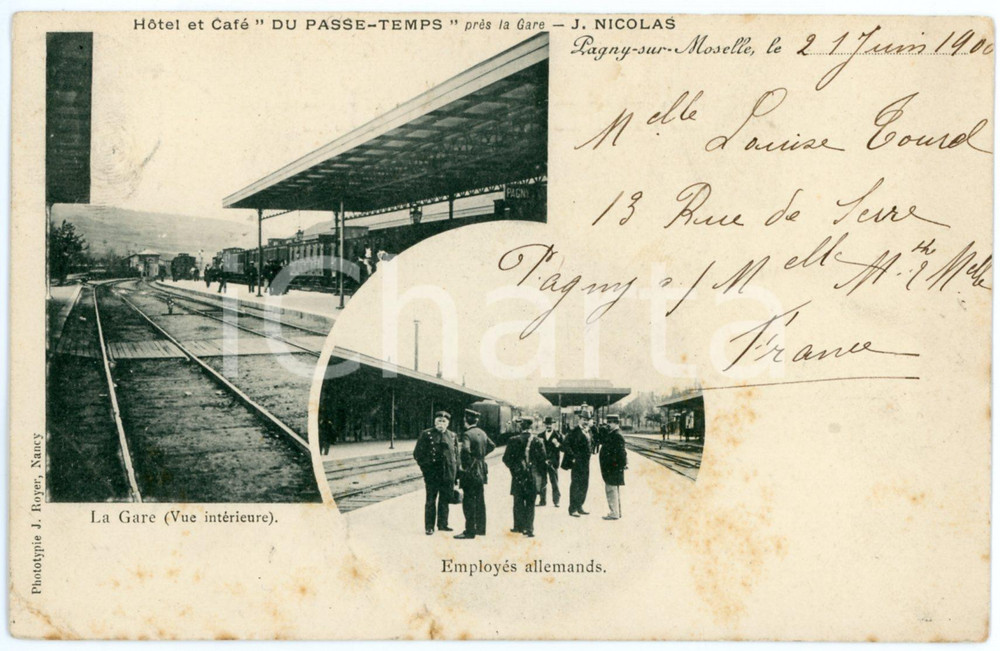 Hôtel et Café " DU PASSE-TEMPS " près la Gare — J. NICOLAS
Pagny-sur-Moselle, le 21 Juin 1900
Melle Louise Tourd
13 Rue de Serre
Pagny s/ Melle Mth &
France
PAGNY
iCharta
La Gare (Vue intérieure).
Employés allemands.
Phototypie J. Royer, Nancy